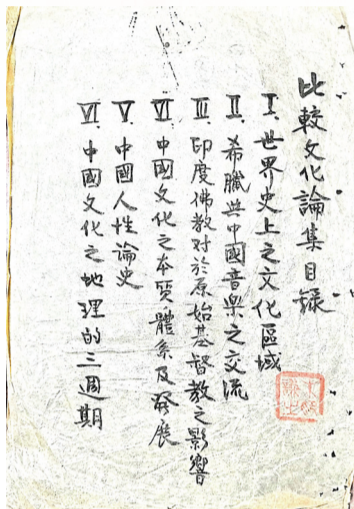 比較文化論集目録
Ⅰ. 世界史上之文化區域
Ⅱ. 希臘與中國音樂之交流
Ⅲ. 印度佛教对於原始基督教之影響
Ⅵ. 中國文化之本質、體系及發展
Ⅴ. 中國人性論史
Ⅵ. 中國文化之地理的三週期